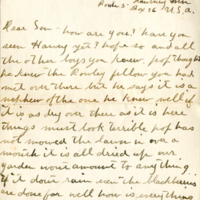 Route 5.
Aug 16 U.S.A.
Dear Son - how are you? have you
seen Harvey yet? hope so and all
the other boys you know. pop thought
he knew the Rowley fellow you had
met over there but he says it is a
nephew of the one he knew well if
it is as dry over there as it is here
things must look terrible pop has
not mowed the lawn in over a
month it is all dried up our
garden wont amount to anything
if it dont rain soon the blackberries
are done for well how is everything